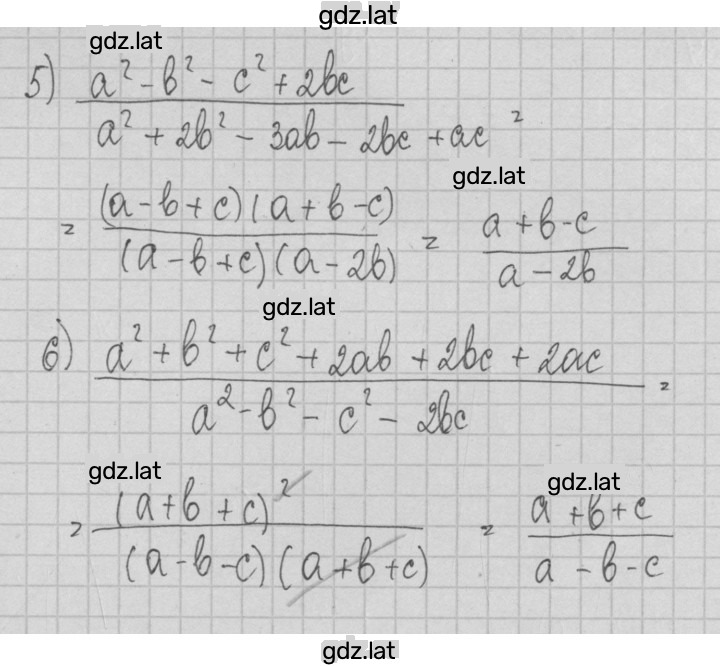 gdz.lat
gdz.lat
5) (a² - b² - c² + 2bc) / (a² + 2b² - 3ab - 2bc + ac) =
gdz.lat
= ((a - b + c)(a + b - c)) / ((a - b + c)(a - 2b)) = (a + b - c) / (a - 2b)
gdz.lat
6) (a² + b² + c² + 2ab + 2bc + 2ac) / (a² - b² - c² - 2bc) =
gdz.lat gdz.lat
= (a + b + c)² / ((a - b - c)(a + b + c)) = (a + b + c) / (a - b - c)
gdz.lat